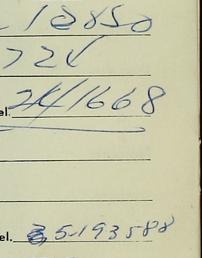 10850
724
el. 241668
el. 5-193588